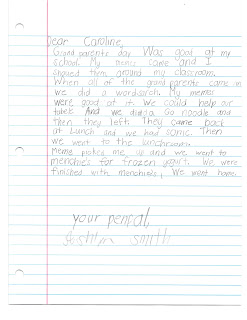 Dear Caroline,
Grand parents day Was good at my
school. My memes came and I
showed them around my classroom.
When all of the grand parents came in
we did a wordsearch. My memes
were good at it. We could help our
table. And we did a Go noodle and
then they left. They came back
at Lunch and we had sonic. Then
we went to the lunchroom.
Meme picked me up and we went to
menchie's for frozen yogurt. We were
finished with menchie's, We went home.
your penpal,
smith